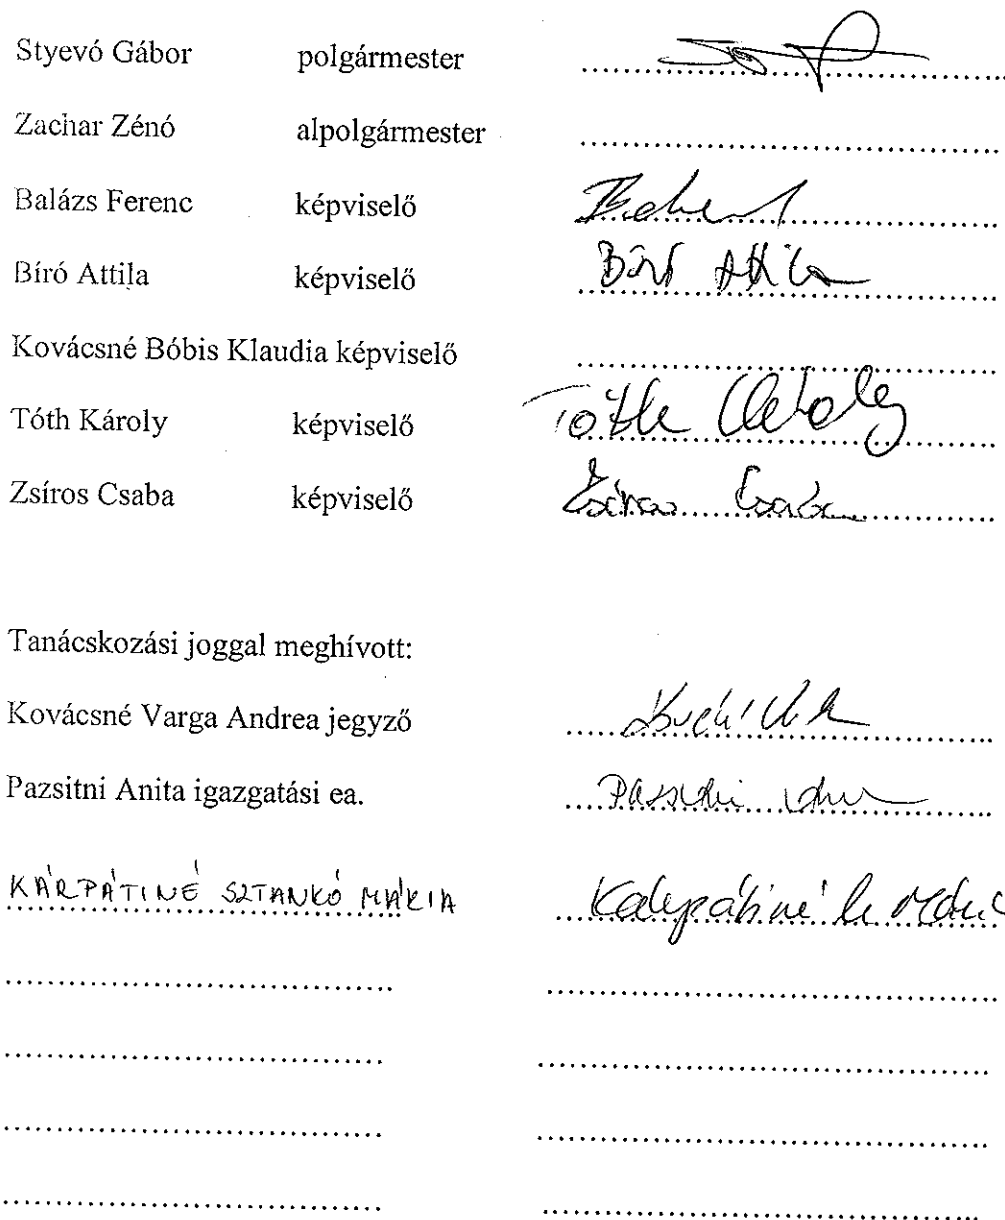 Styevó Gábor polgármester ........................................
Zachar Zénó alpolgármester ........................................
Balázs Ferenc képviselő ........................................
Bíró Attila képviselő Bíró Attila
Kovácsné Bóbis Klaudia képviselő ........................................
Tóth Károly képviselő Tóth Károly
Zsíros Csaba képviselő Zsíros Csaba
Tanácskozási joggal meghívott:
Kovácsné Varga Andrea jegyző ........................................
Pazsitni Anita igazgatási ea. ........................................
KÁRPÁTINÉ SZTANKÓ MÁRIA Kárpátiné